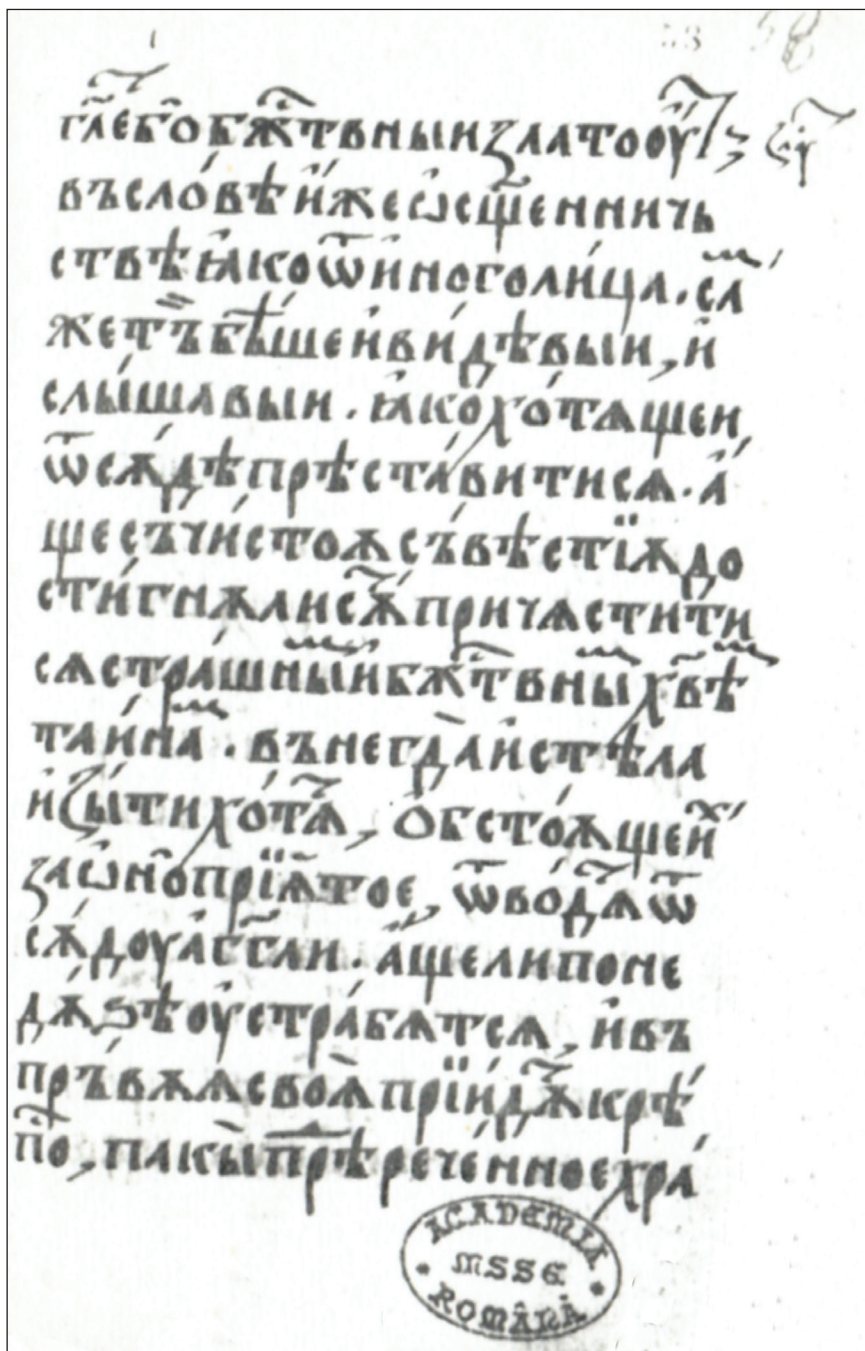 58
гл҃ебо̑бж҃твныиꙁлатооу҃
въсло́вѣи́жеѡ҆сщ҃еничь
ствѣꙗ҆коѿи́ноголи́ца. са҃
жетъ̏бы́шеи҆ви́дѣвыи, и҆
слы́шавыи. ꙗ҆кохо́тѧщеи
ѿсѫ́дѣпрѣста́витисѧ. а҆́
щесъ̏чи́стоѫсъ̏вѣстїѫдо
сти́гнѫлисѫ҃причѧстити
сѧстра́шныи҆бж҃твныхв҃ѣ
таи́на. вънегдаи҆стѣла
иꙁы́тихо́тѧ҃, о҆бсто́ѫщеи҆
ꙁаѡ҆но̑прїѧ́тое, ѿво́дѧѿ
сѫ́дꙋа҆́гг҃ли. а҆́щелипоне
дѫ́ѕѣоу҆стра́бѧтсѧ, и҆въ
пръ̏вѫѧсвоѧ҆прїи́дѫ҃крѣ́
по҃, пакы̏прѣрече́нноехра́
ACADEMIA
MSSE
ROMÂNĂ